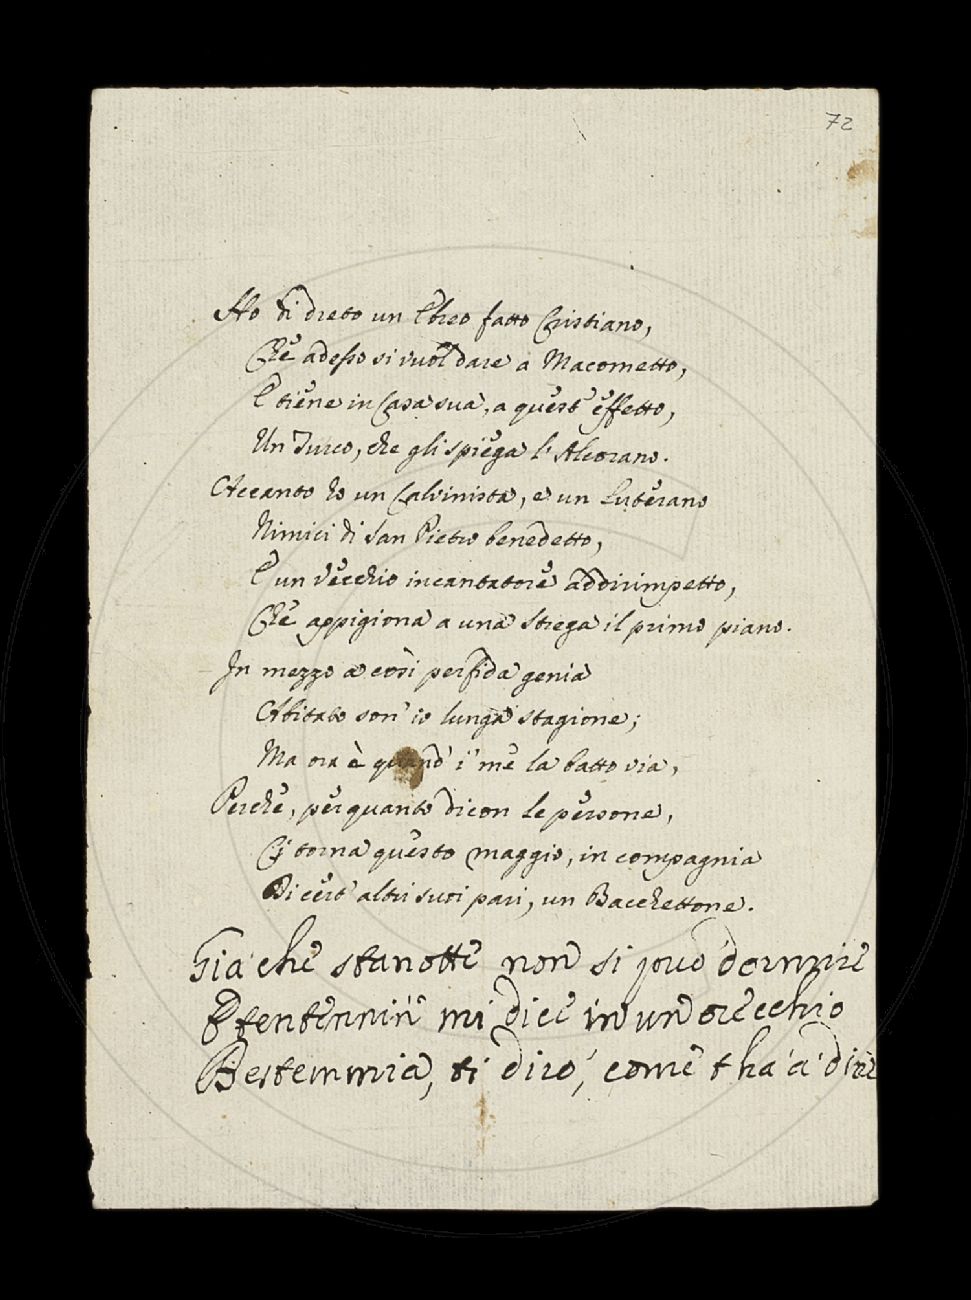 72
Ho di dreto un Ebreo fatto Cristiano,
Che adesso si vuol dare a Macometto,
E tiene in Casa sua, a quest' effetto,
Un Turco, che gli spiega l' Alcorano.
Accanto ho un Calvinista, e un Luterano
Nimici di San Pietro benedetto,
E un Vecchio incantatore addirimpetto,
Che appigiona a una Strega il primo piano.
In mezzo a così perfida genìa
Abitato son' io lunga stagione;
Ma ora è quand' i' me la batto via,
Perchè, per quanto dicon le persone,
Ci torna questo maggio, in compagnia
Di cert' altri suoi pari, un Bacchettone.
Gia che stanotte non si puo dormire
mi dice in un orecchio
Bestemmia, ti diro, come t ha a dire